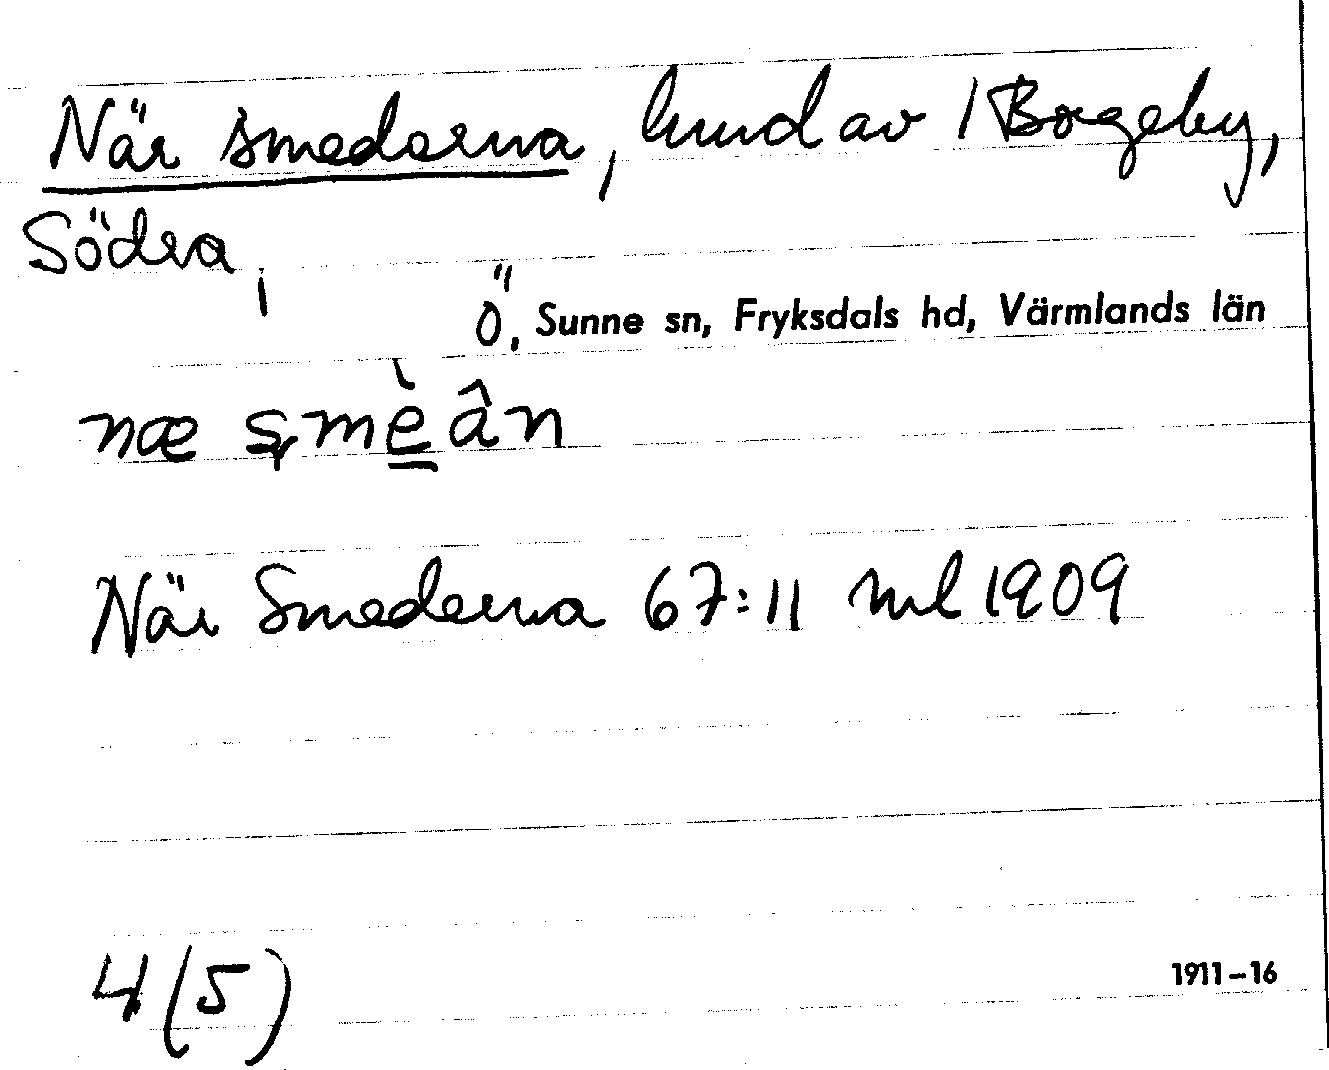 När smederna, lund av / Borgeby,
Södra,
Ö, Sunne sn, Fryksdals hd, Värmlands län
næ smè̱ân
När Smederna 67:11 ml 1909
4 (5)
1911-16